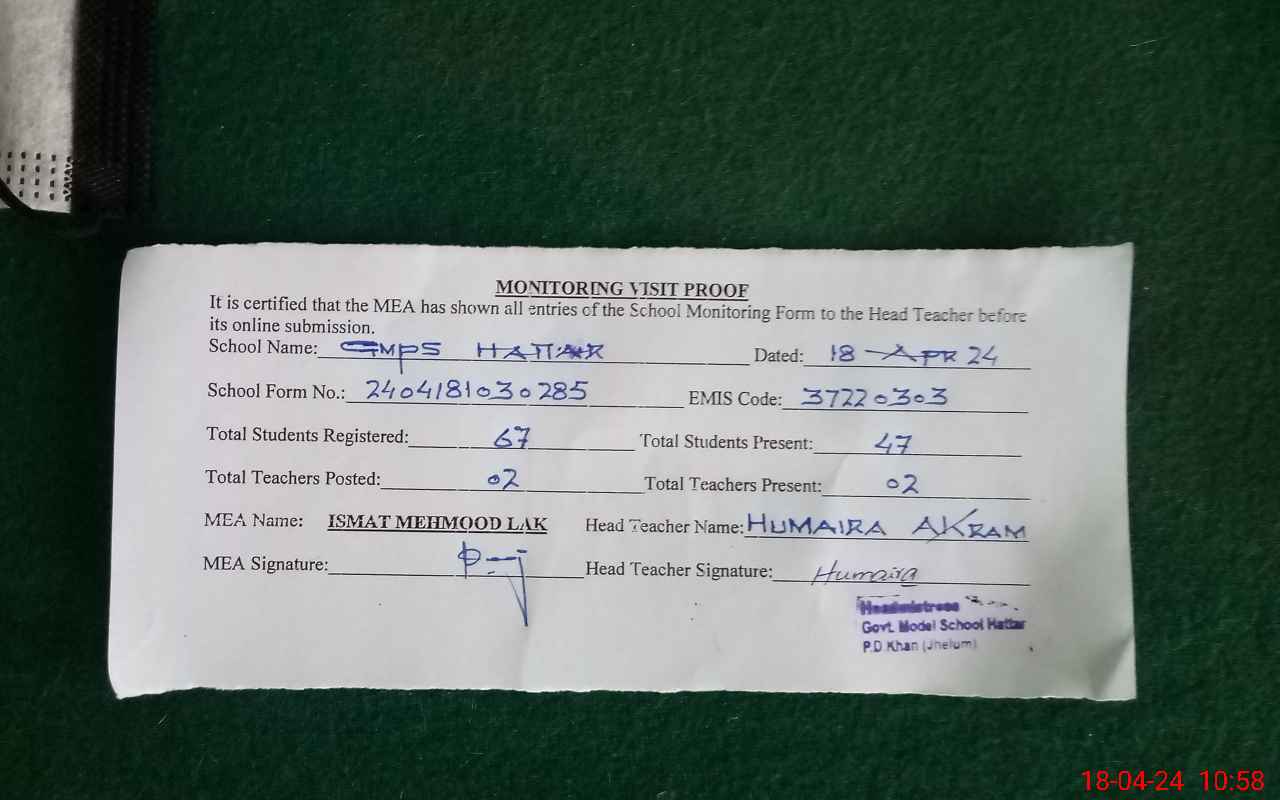 MONITORING VISIT PROOF
It is certified that the MEA has shown all entries of the School Monitoring Form to the Head Teacher before
its online submission.
School Name: GMPS HATTAR Dated: 18-APR 24
School Form No.: 2404181030285 EMIS Code: 37220303
Total Students Registered: 67 Total Students Present: 47
Total Teachers Posted: 02 Total Teachers Present: 02
MEA Name: ISMAT MEHMOOD LAK Head Teacher Name: HUMAIRA AKRAM
MEA Signature: Head Teacher Signature: Humaira
Headmistress
Govt. Model School Hattar
P.D.Khan (Jhelum)
18-04-24 10:58